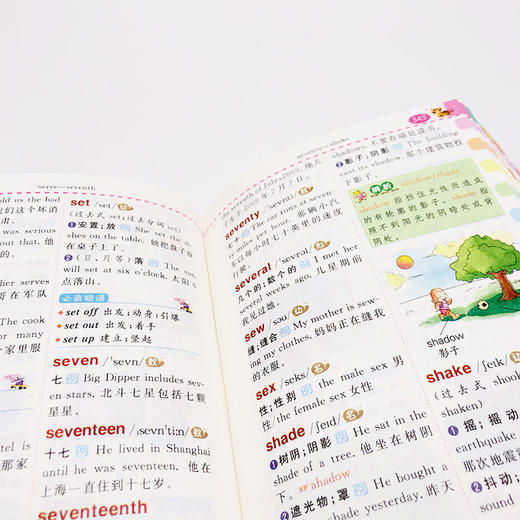 serve—seventh
told us the bad
们这个坏消
was serious
out that. 他
肃。
her serves
哥在军队
The cook
or many
个家里服
tel is
那家
set /set/ 动
(过去式 set;过去分词 set)
❶安置;放 例 She set the di-
shes on the table. 她把盘子放
在桌子上了。
❷(日、月等)落 例 The sun
will set at six o'clock. 太阳六
点落山。
必备短语
set off 出发;动身;引爆
set out 出发;着手
set up 建立;竖起
seven /ˈsevn/ 数
七 例 Big Dipper includes sev-
en stars. 北斗七星包括七颗
星星。
seventeen /ˌsevnˈtiːn/ 数
十七 例 He lived in Shanghai
until he was seventeen. 他在
上海一直住到十七岁。
seventeenth
343
seventy—shake
seventh of July, 2009. 他儿
2009 年 7 月 7 日。
seventy
七十 例 The car runs at seven-
ty miles per hour. 那辆小汽
车以每小时七十英里的速度
行驶。
several /ˈsevrəl/ 形
几个的;数个的 例 I met her
several weeks ago. 几星期前
我见过她。
sew /səʊ/ 动
缝;缝合 例 My mother is sew-
ing my clothes. 妈妈正在缝我
的衣服。
sex /seks/ 名
性;性别 例 the male sex 男
性/the female sex 女性
shade /ʃeɪd/ 名
❶树阴;阴影 例 He sat in the
shade of a tree. 他坐在树阴
下。 ahadow
❷遮光物;罩 例 He bought a
shade yesterday. 昨天
shadows. 不要在暗处读书。
❷影子;阴影 例 The building
cast its shadow. 那个建筑物投
下影子。
辨析 shadow/shade
shadow 指挡住光线而造成
的有轮廓的影子。shade 指
照不到阳光的阴暗处或者
阴处。
shadow
影子
shake /ʃeɪk/ 动
(过去式 shook
shaken)
❶摇;摇动
earthquake
那次地震
❷抖动;
sound